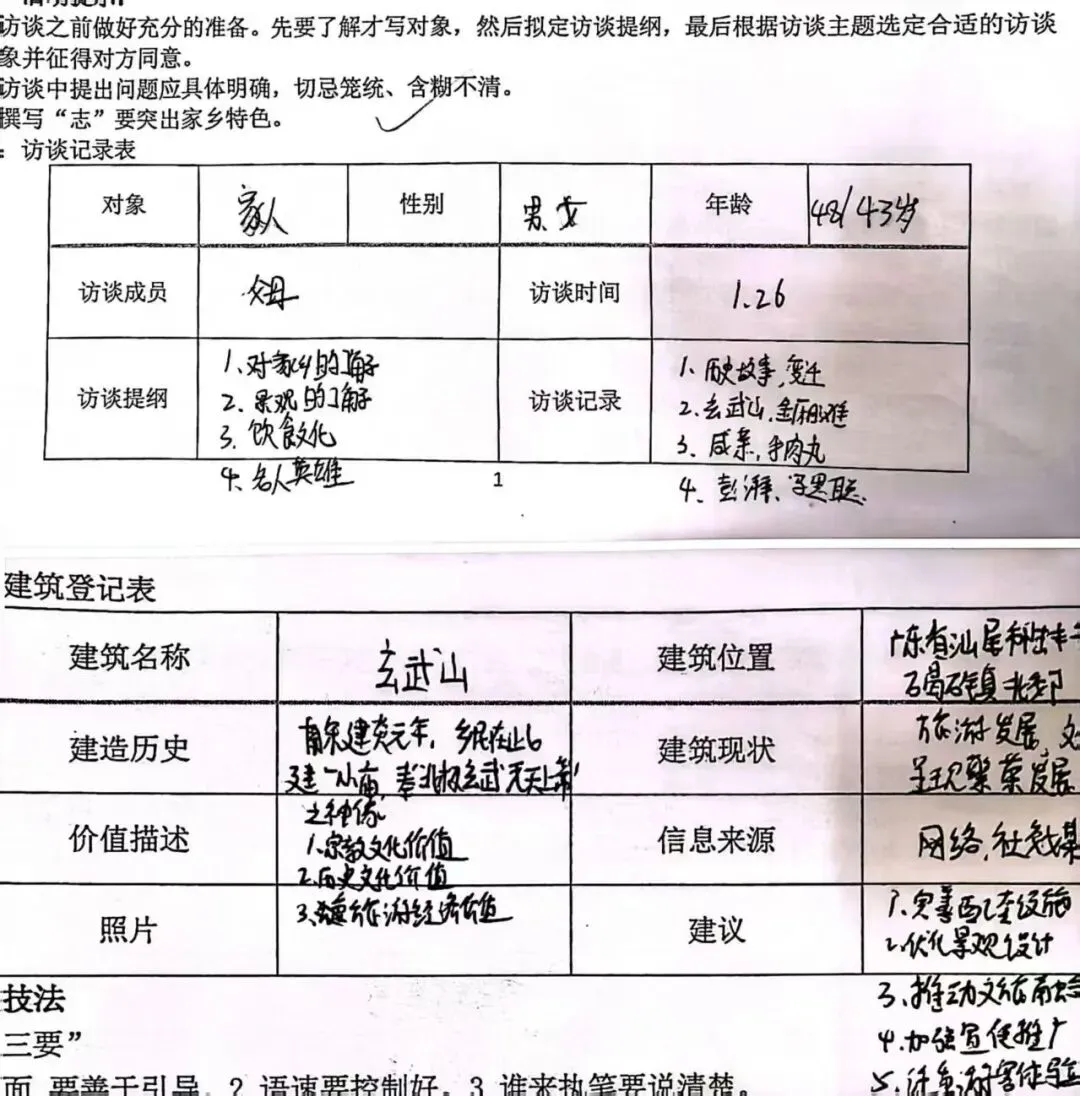 访谈之前做好充分的准备。先要了解才写对象，然后拟定访谈提纲，最后根据访谈主题选定合适的访谈
象并征得对方同意。
访谈中提出问题应具体明确，切忌笼统、含糊不清。
撰写“志”要突出家乡特色。
：访谈记录表
对象 家人 性别 男 女 年龄 48/43岁
访谈成员 父母 访谈时间 1.26
访谈提纲
1、对家乡的了解
2、景观的了解
3、饮食文化
4、名人英雄
访谈记录
1、历史故事,变迁
2、玄武山,金厢滩
3、咸茶,牛肉丸
4、彭湃、
1
建筑登记表
建筑名称 玄武山 建筑位置 广东省汕尾
碣石镇北郊
建造历史 南宋建炎元年，乡民在此
建一小庙,奉北极玄武玄天上帝
之神像
建筑现状 旅游发展,
呈现繁荣发展
价值描述
1.宗教文化价值
2.历史文化价值
3.旅游经济价值
信息来源 网络,社
照片
建议
1.完善配套设施
2.优化景观设计
3、推动文旅融合
4.加强宣传推广
5、注重游客体验
技法
三要”
面 要善于引导。2 语速要控制好。3 谁来执笔要说清楚。